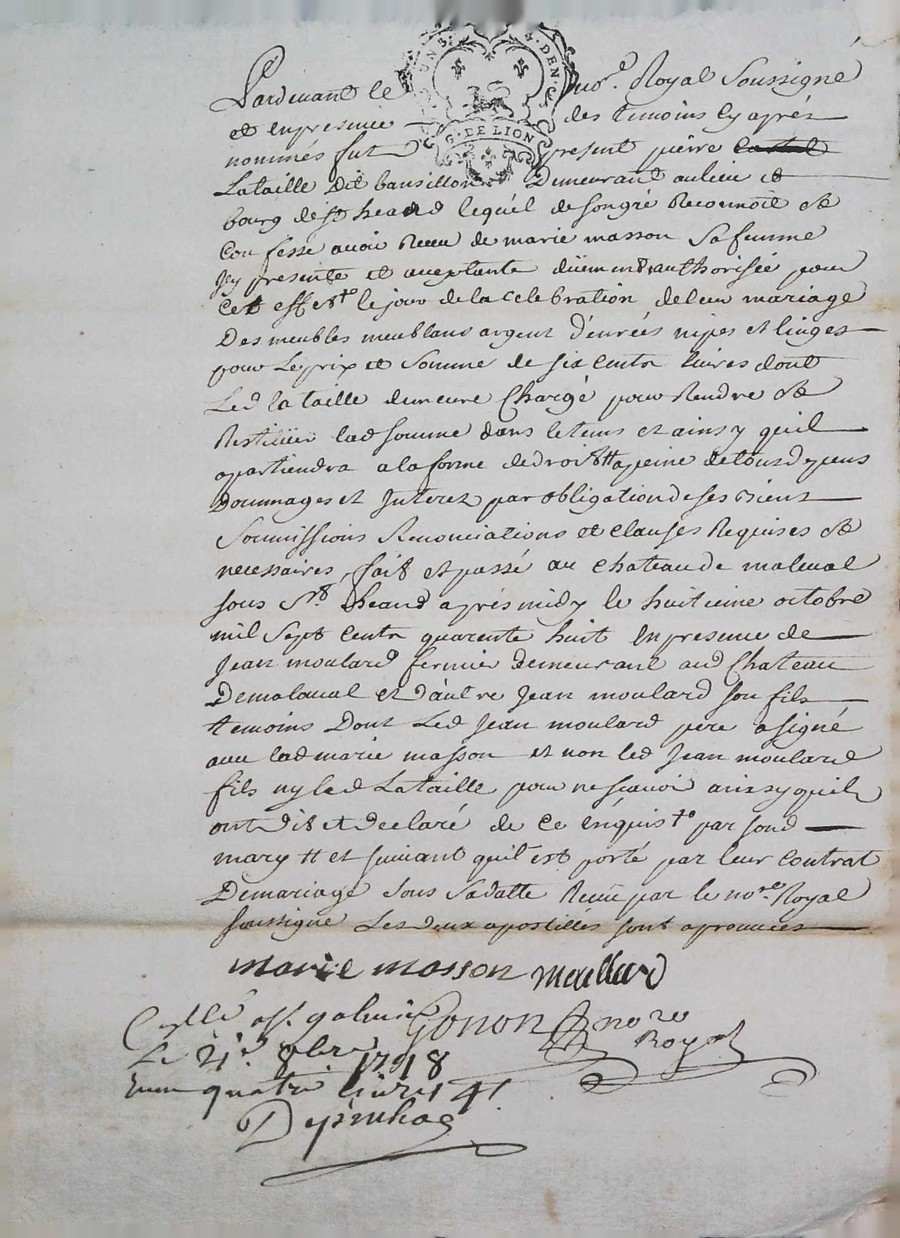 UN S. 8. DEN.
G. DE LION
Pardevant le no.re Royal Soussigné
et en presence des temoins cy aprés
nommés fut present pierre
Lataille dit bansillon Demeurant au lieu et
bourg de st heand lequel de son gré Reconnoit et
Confesse avoir Receu de marie masson Sa femme
jcy presente et aceptante düement authorisée pour
cet effet to le jour de la celebration de leur mariage
Des meubles meublans argent d'enrées nipes et linges
pour Le prix et Somme de six cents livres dont
Led lataille demeure Chargé pour Rendre et
Restitüer lad somme dans le tems et ainsy quil
apartiendra a la forme de droit tt a peine de tous dépens
Dommages et Interez par obligation de ses biens
Soumissions Renonciations et clauses Requises et
necessaires, fait et passé au chateau de malval
sous St heand aprés midy le huitieme octobre
mil Sept cents quarente huit en presence de
Jean moulard fermier demeurant aud Chateau
Demalaval et d'autre Jean moulard son fils
temoins Dont Led Jean moulard pere a signé
avec lad marie masson et non led Jean moulard
fils ny led Lataille pour ne scavoir ainsy quils
ont dit et declaré de ce enquis to par sond
mary tt et suivant qu'il est porté par leur contrat
De mariage Sous Sa datte Receu par le no.re Royal
soussigné Les deux apostilles sont aprouvées
marie masson moullard
Gonon no re
Royal
Cllé a st galmier
Le 21e 8bre 1748
quatre livres 4 l